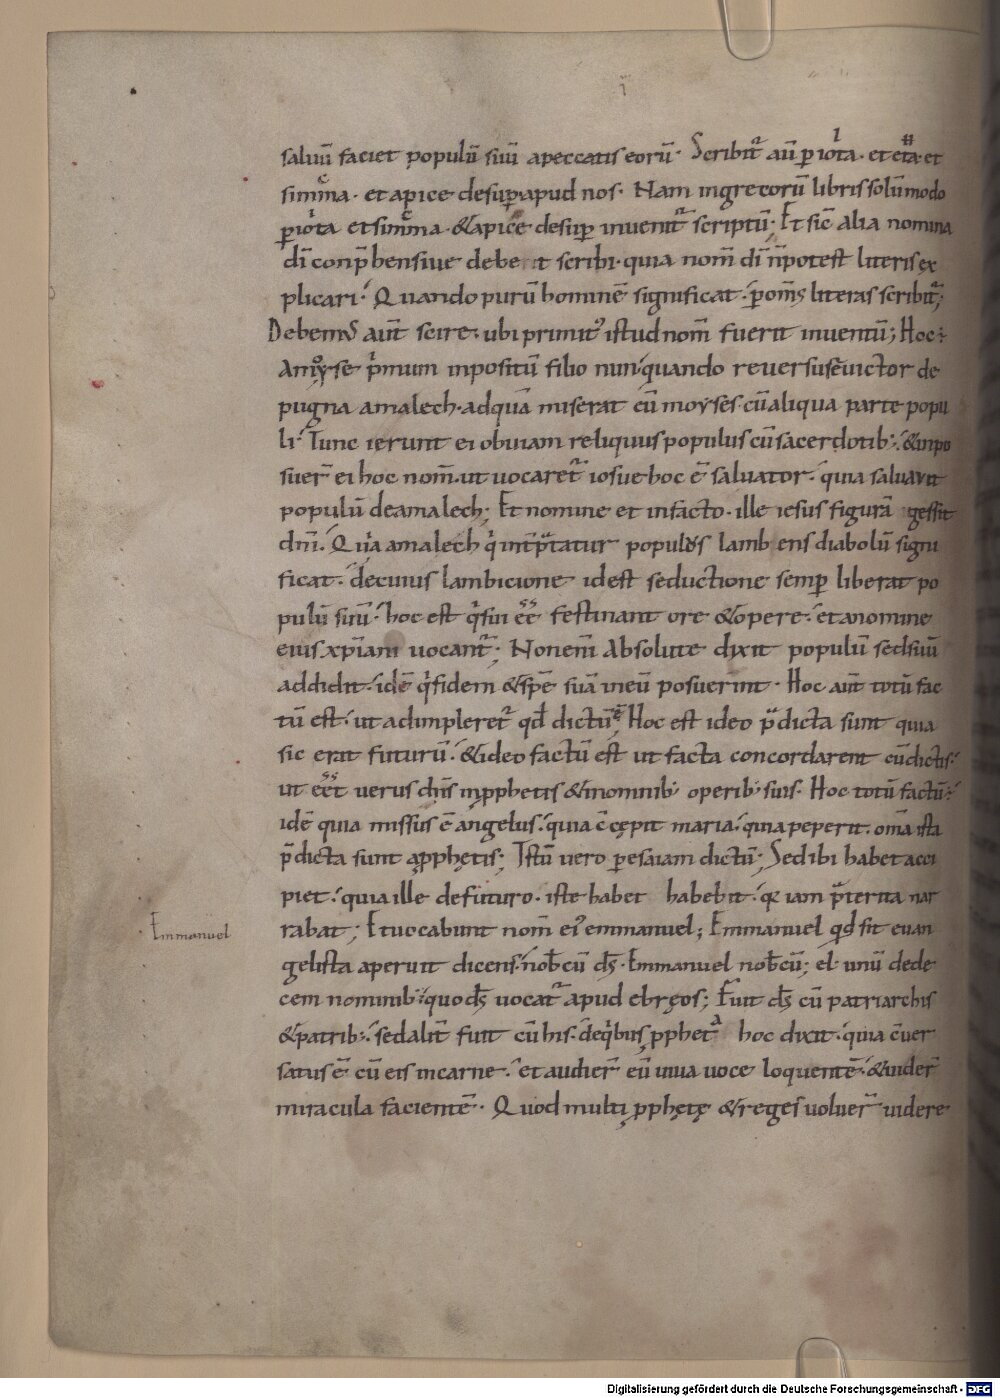 saluū faciet populū suū apeccatis eorū· Scribit̄ aū ꝑ iota· et eta· et
simma· et apice desuꝑ apud nos· Nam ingrecorū libris solūmodo
ꝑ iota et simma· & apice desuꝑ inuenit̄ scriptū· Et sic̄ alia nomina
dī conp̄hensiue debent scribi· quia nom̄ dī n̄ potest literis ex
plicari· Quando purū hominē significat· ꝑ om̄s literas scribit̄;
Debemꝰ aut̄ scire· ubi primitꝰ istud nom̄ fuerit inuentū; Hoc·
Amoyse pmum inpositū filio nun· quando reuersus ē uictor de
pugna amalech· ad quā miserat eū moyses· cū aliqua parte popu
li· Tunc ierunt ei obuiam reliquus populus cū sacerdotib;· & inpo
suer̄ ei hoc nom̄· ut uocaret̄ iosue hoc ē saluator· quia saluauit
populū de amalech; Et nomine et infacto· ille iesus figurā gessit
dn̄i· Quia amalech qi int̄p̄tatur populus lambens diabolū signi
ficat· decuius lambicione id est seductione semꝑ liberat po
pulū suū· hoc est qi sui ēē festinant ore & opere· et anomine
eius xp̄iani uocant̄; Non enī absolute dixit populū sed suū
addidit· idē qi fidem & spē suā in eū posuerunt· Hoc aut̄ totū fac
tū est· ut adimpleret̄ qđ dictū ē Hoc est ideo p̄dicta sunt quia
sic erat futurū· & ideo factū est ut facta concordarent cū dictis·
ut eēt uerus dn̄s inꝓphetis & inomnib; operib; suis· Hoc totū factū·
idē quia missus ē angelus· quia c̄cępit maria· quia peperit· om̄a ista
p̄dicta sunt aꝓphętis; Istū uero ꝑ esaiam dictū; Sed ibi habet acci
piet· quia ille defuturo· iste habet habebit· qi iam p̄terita nar
rabat; Et uocabunt nom̄ eiꝰ emmanuel; Emmanuel qđ sit euan
Emmanuel
gelista aperuit dicens· nob̄ cū dꝰ· Emmanuel nob̄ cū; el unū dede
cem nominib; quo dꝰ uocat̄ apud ebręos; Fuit dꝰ cū patriarchis
& patrib;· sed alit̄ fuit cū his· de qibus ꝓpheta hoc dixit· quia c̄uer
satus ē cū eis incarne· et audier̄ eū uiua uoce loquentē· & uider̄
miracula facientē· Quod multi ꝓphętę & reges uoluer̄ uidere
Digitalisierung gefördert durch die Deutsche Forschungsgemeinschaft - DFG